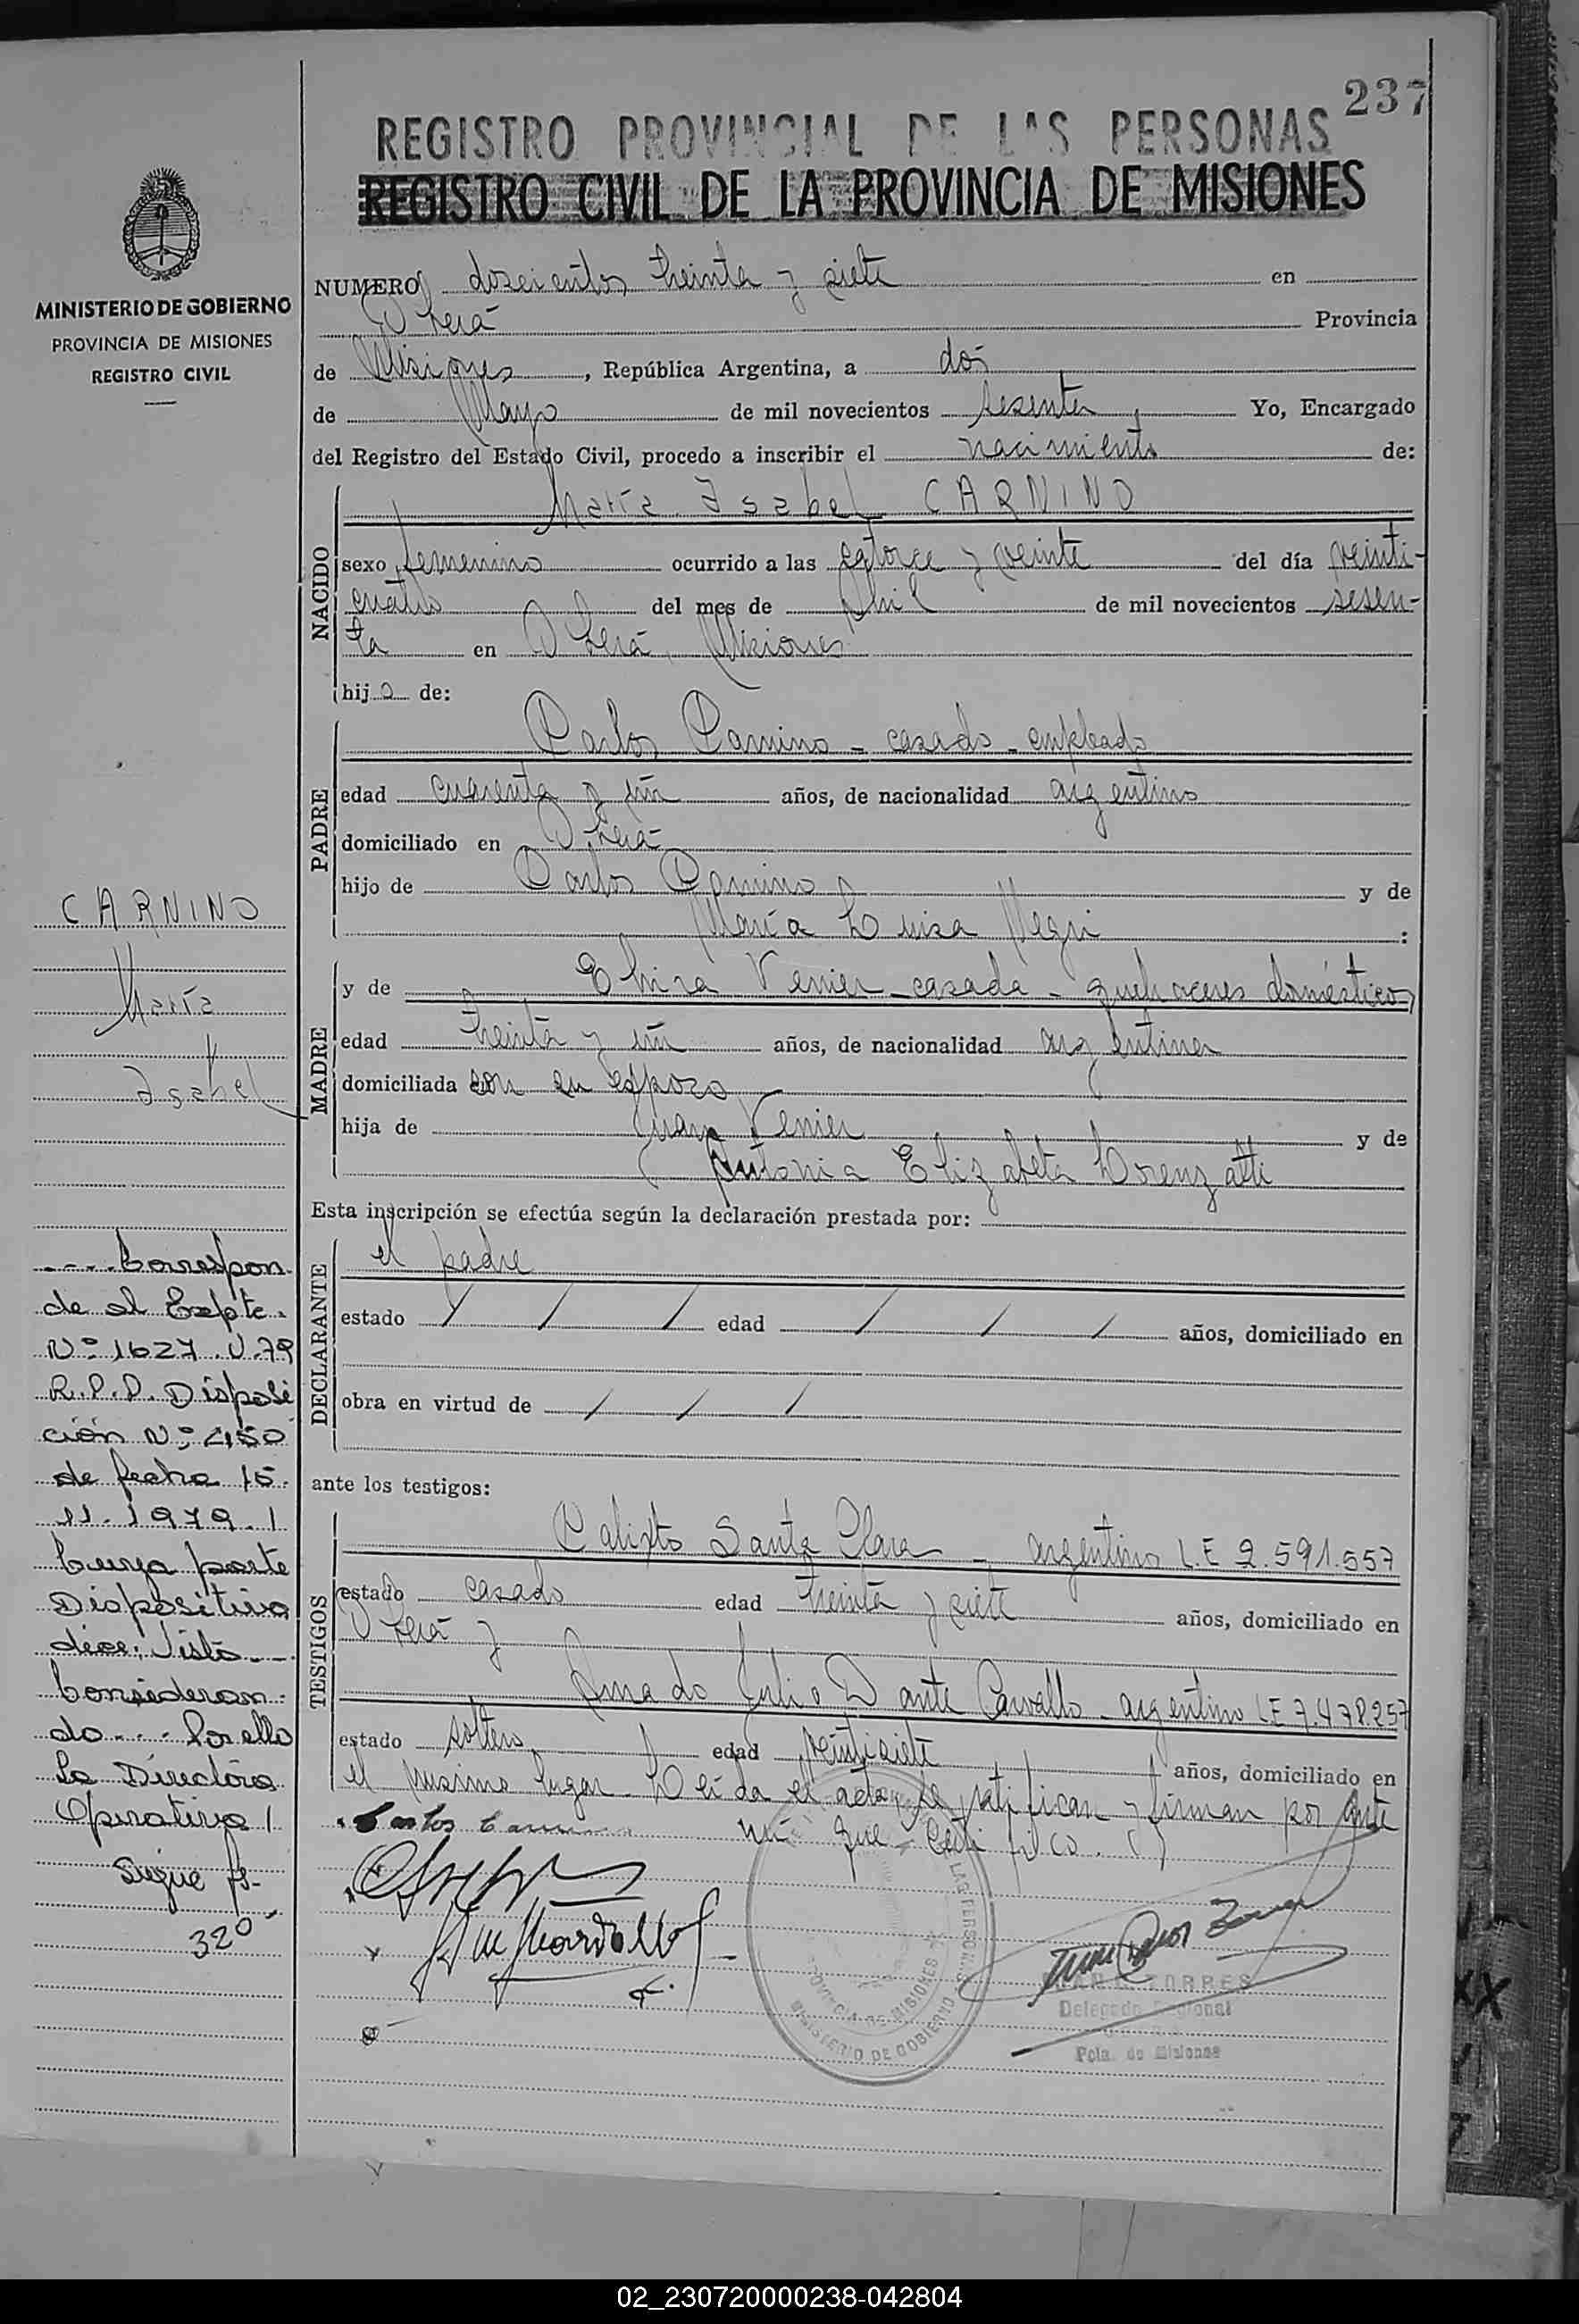 237
REGISTRO PROVINCIAL DE LAS PERSONAS
REGISTRO CIVIL DE LA PROVINCIA DE MISIONES
MINISTERIO DE GOBIERNO
PROVINCIA DE MISIONES
REGISTRO CIVIL
NUMERO doscientos treinta y siete en
Oberá Provincia
de Misiones, República Argentina, a dos
de Mayo de mil novecientos sesenta, Yo, Encargado
del Registro del Estado Civil, procedo a inscribir el nacimiento de:
NACIDO
María Isabel CARNINO
sexo femenino ocurrido a las catorce y veinte del día veinti-
cuatro del mes de Abril de mil novecientos sesen-
ta en Oberá, Misiones
hija de:
PADRE
Carlos Carnino - casado - empleado
edad cuarenta y un años, de nacionalidad argentino
domiciliado en Oberá
hijo de Carlos Carnino y de
María Luisa Negri :
MADRE
y de Elvira Venier - casada - quehaceres domésticos
edad treinta y un años, de nacionalidad argentina
domiciliada con su esposo
hija de Juan Venier y de
Antonia Elizabeta Lorenzatti
Esta inscripción se efectúa según la declaración prestada por:
DECLARANTE
el padre
estado / / / edad / / / años, domiciliado en
obra en virtud de / / /
ante los testigos:
TESTIGOS
Calixto Santa Clara - argentino L.E 2.591.557
estado casado edad treinta y siete años, domiciliado en
Oberá y
Amado Julio Dante Carvallo - argentino LE 7.478.257
estado soltero, edad veintisiete años, domiciliado en
el mismo lugar. Leída el acta, se ratifican y firman por ante
mí que certifico.
Carlos Carnino
JUAN TORRES
Delegado Regional
Pcia. de Misiones
LAS PERSONAS
PROVINCIA DE MISIONES
MINISTERIO DE GOBIERNO
CARNINO
María
Isabel
---- Correspon-
de al Expte.
Nº 1627.V.79
R.P.P. Disposi
ción Nº 450
de fecha 15.
11.1979.1
Cuya parte
Dispositiva
dice: Visto--
Consideran-
do---- Por ello
La Directora
Operativa 1
Sigue fs-
320
02_230720000238-042804